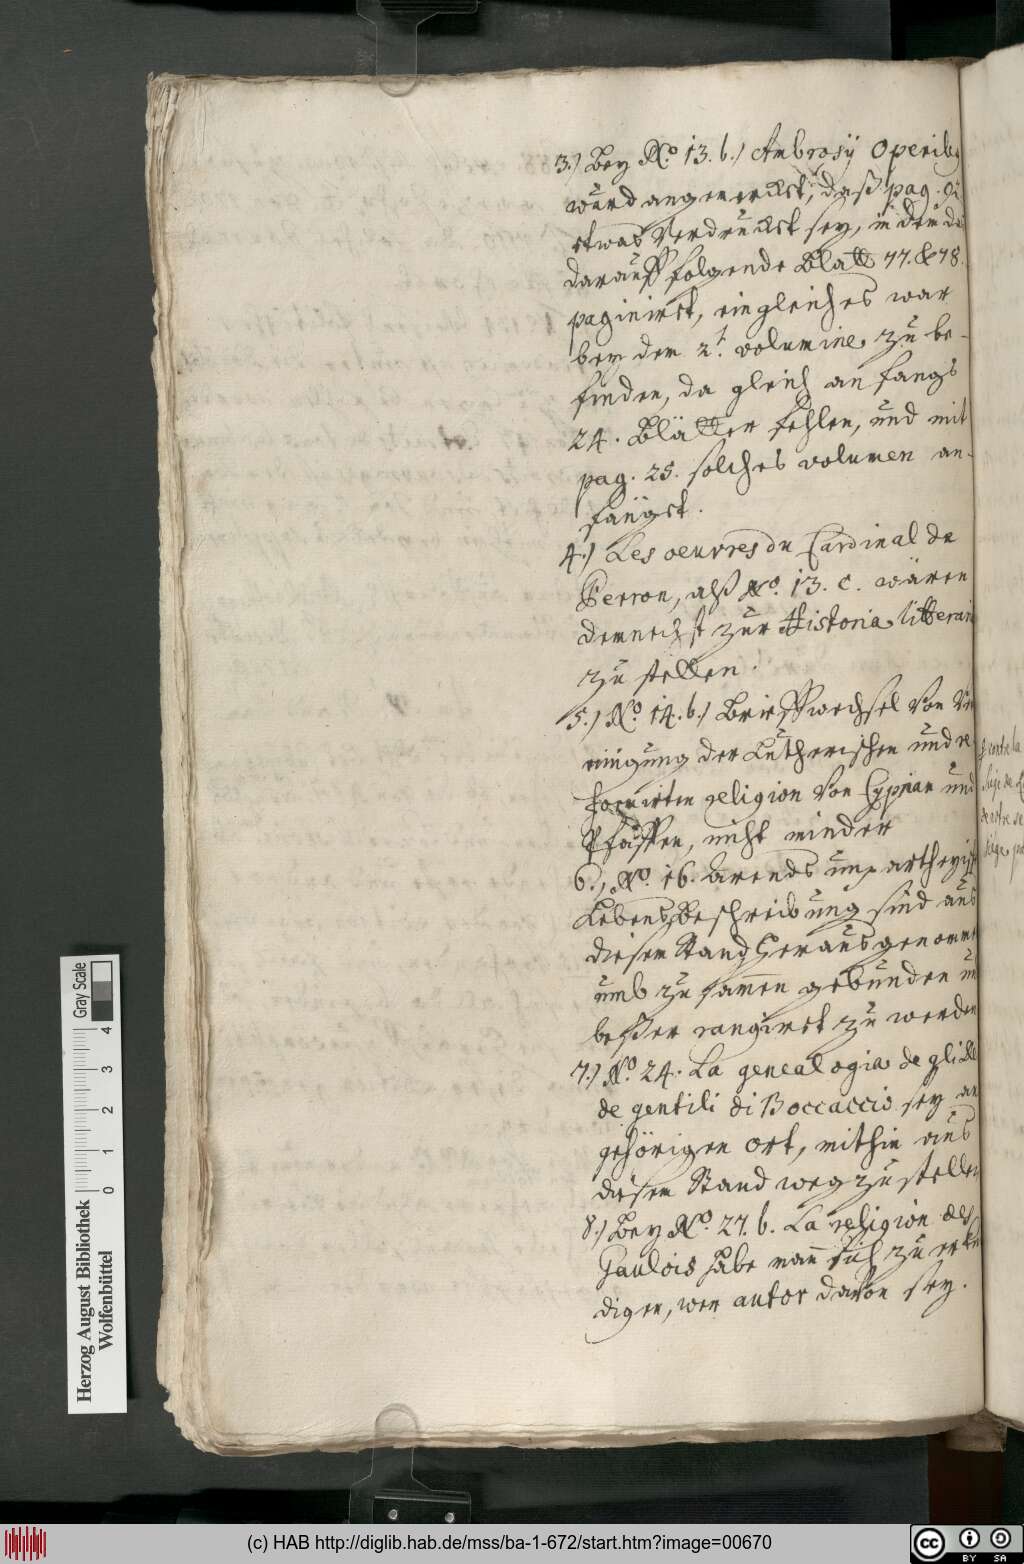 3.) Bey No 13. b.) Ambrosÿ Operib
wurd angemerckt, daß pag.
etwas Verdruckt sey, in dem da
darauff folgende Blatt 77. & 78.
paginirt, ein gleiches war
bey dem 2t. volumine zu be-
finden, da gleich anfangs
24. Blätter fehlen, und mit
pag. 25. solches volumen an-
fängt.
4.) Les oeuvres du Cardinal de
Perron, alß No. 13. c. wären
demnechst zur Historia litterari
zu stellen.
5.) No 14. b.) Brieffwechsel von Ver
einigung der Lutherischen und re
formirten religion von Cyprian und
Pfaffen, nicht minder
6., No. 16. Arends unpartheyis
Lebens Beschreibung sind aus
diesem Stand herausgenomm
umb zusamen gebunden un
beßer rangirt zu werden
7.) No. 24. La genealogia de gli de
de gentili di Boccaccio sey an
gehörigen ort, mithin aus
diesem Stand weg zu stellen
8.) Bey No. 27. b. La religion des
Gaulois habe man sich zu erkun
digen, wer autor davon sey.
Herzog August Bibliothek
Wolfenbüttel
0 1 2 3 4
Gray Scale
(c) HAB http://diglib.hab.de/mss/ba-1-672/start.htm?image=00670
cc BY SA